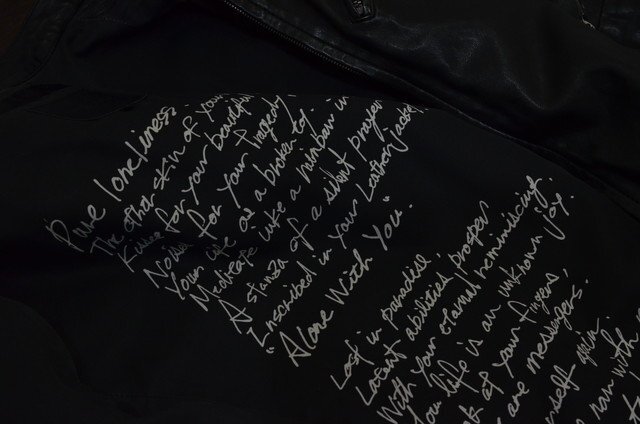 Pure loneliness.
The other skin of your
Kissing for your beautiful
Noise for your tragedy.
Your are as a broken toy.
Meditate like a rainbow in
A stanza of a silent prayer
"Inscribed in Your Leather Jacket
Alone With You."
Lost in paradise.
Latent abilities prosper
With your eternal reminiscing.
You life is an unknown joy.
at your fingers,
are messengers.
self again.
now with